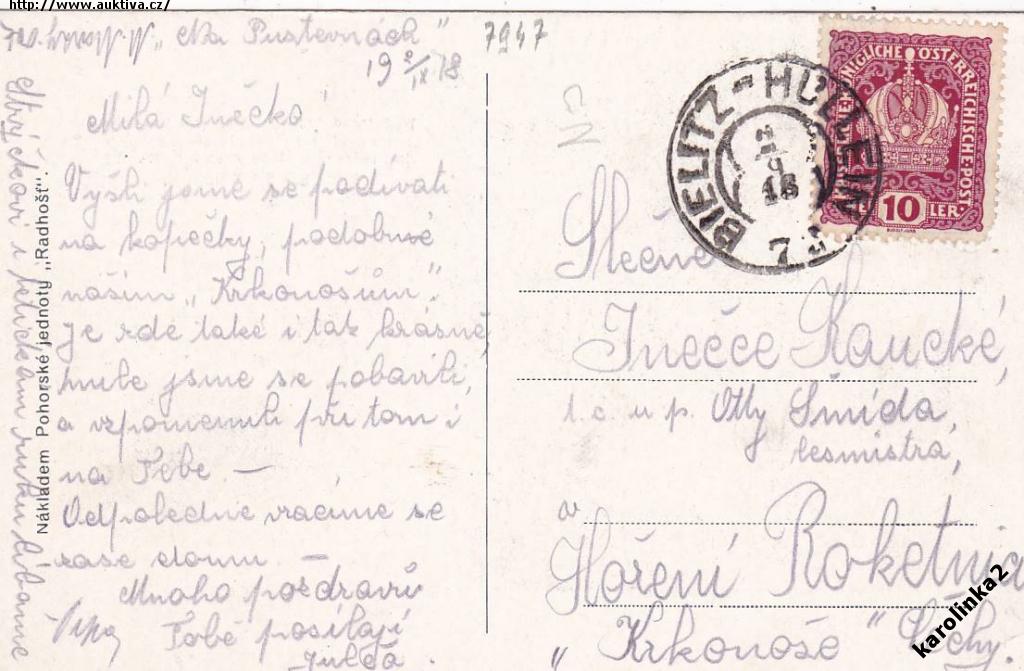 http://www.auktiva.cz/
„Na Pustevnách"
7947
19 2/IX 18
Milá Inečko!
Vyšli jsme se podívati
na kopečky, podobné
našim „Krkonošům".
Je zde také i tak krásně,
mile jsme se pobavili,
a vzpomenuli při tom i
na Tebe. —
Odpoledne vracíme se
zase domu. —
Mnoho pozdravů
Tobě posílají
Pepa
Julča.
Strýčkovi i tetičkám ruku líbáme
Nákladem Pohorské jednoty „Radhošť".
BIELITZ-HULLEIN
2 9 18
7
KÖNIGLICHE ÖSTERREICHISCHE POST
10
LER
Slečně
Inečce Kaucké,
t. č. u p. Otty Šmída,
lesmistra,
v
Hoření Roketnia
„Krkonoše" Čechy.
karolinka2